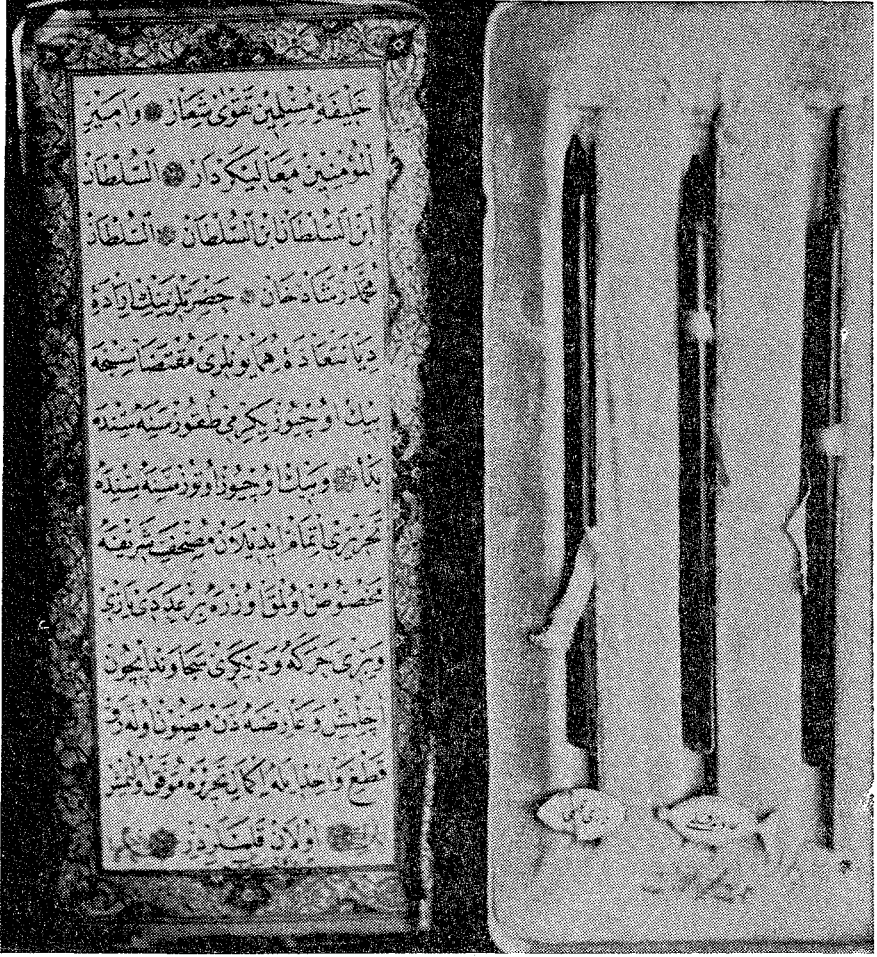 خليفۀ مسلمين تقوى شعار وامير
المؤمنين معاليكردار السلطان
ابن السلطان ابن السلطان السلطان
محمد رشاد خان حضرتلرينك اراده
سعاده همايونلرى مقتضاسنجه
بيك اوچيوز يكرمى طقوز سنه سنده
بدأ وبيك اوچيوز اوتوز سنه سنده
تحريرى اتمام ايديلان مصحف شريفه
مخصوص اولمق اوزره بر عددى يازى
وبرى حركه و ديكرى سجاوند ايچون
و عارضه دن مصون اوله رق
قطع واحد ايله اكمال تحريره موفق اولنمش
اولان قلملردر